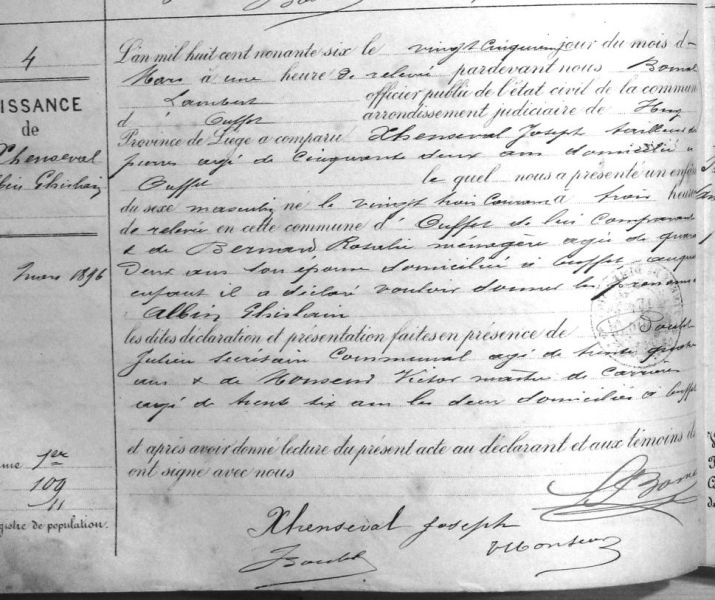 4
ISSANCE
de
Xhenseval
Albin Ghislain
mars 1896
1er
109
11
gistre de population.
L'an mil huit cent nonante six le vingt cinquième jour du mois d
Mars à une heure de relevée pardevant nous Bomal
Lambert officier public de l'état civil de la commun
d' Ouffet arrondissement judiciaire de Huy
Province de Liège a comparu Xhenseval Joseph tailleur de
pierres agé de Cinquante deux ans domicilié à
Ouffet le quel nous a présenté un enfan
du sexe masculin né le vingt trois Courant à trois heures
de relevée en cette commune d' Ouffet de lui Comparant
& de Bernard Rosalie ménagère agée de quarante
Deux ans son épouse domiciliée à Ouffet auquel
enfant il a déclaré vouloir donner les prénoms
Albin Ghislain
les dites déclaration et présentation faites en présence de
Julien Secrétaire Communal agé de trente quatre
ans & de Monseur Victor maître de Carrières
agé de trente six ans les deux domiciliés à Ouffet
et après avoir donné lecture du présent acte au déclarant et aux témoins ils
ont signé avec nous
Xhenseval Joseph
V Monseur